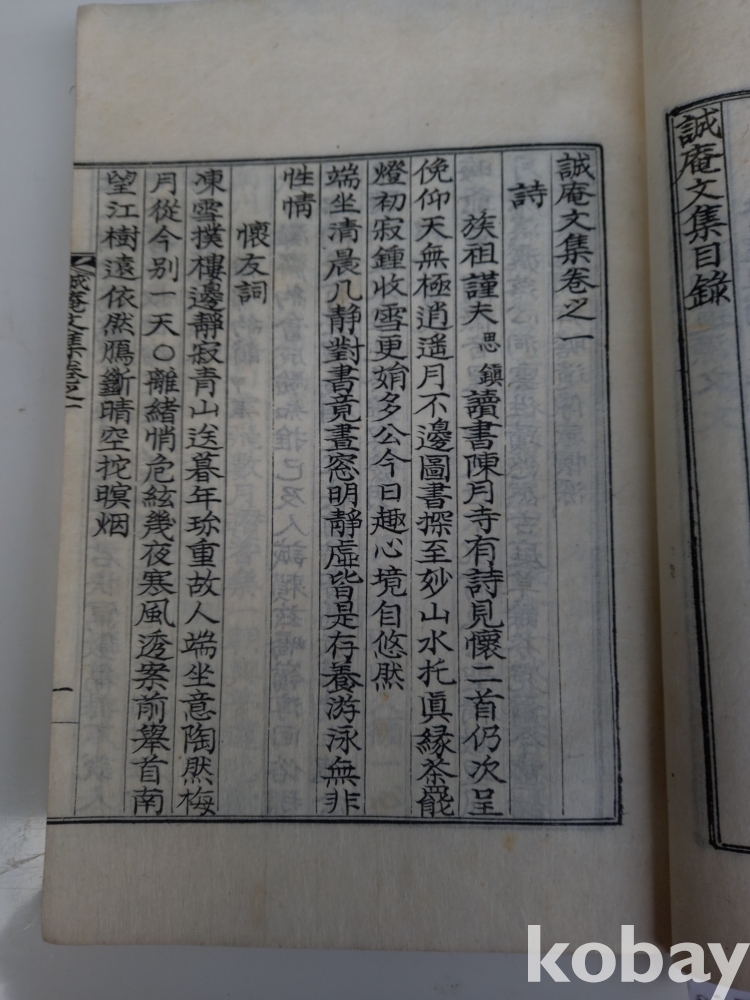 誠庵文集目錄
誠庵文集卷之一
詩
族祖謹夫思鎮讀書陳月寺有詩見懷二首仍次呈
俛仰天無極逍遥月不邊圖書探至妙山水托眞緣茶罷
燈初寂鍾收雪更娟多公今日趣心境自悠然
端坐清晨几靜對書竟晝窓明靜虛皆是存養游泳無非
性情
懷友詞
凍雪撲樓邊靜寂青山送暮年珎重故人端坐意陶然梅
月從今別一天〇離緒悄危絃幾夜寒風透案前擧首南
望江樹遠依然鴈斷晴空挖暝烟
誠庵文集卷之一
一
kobay